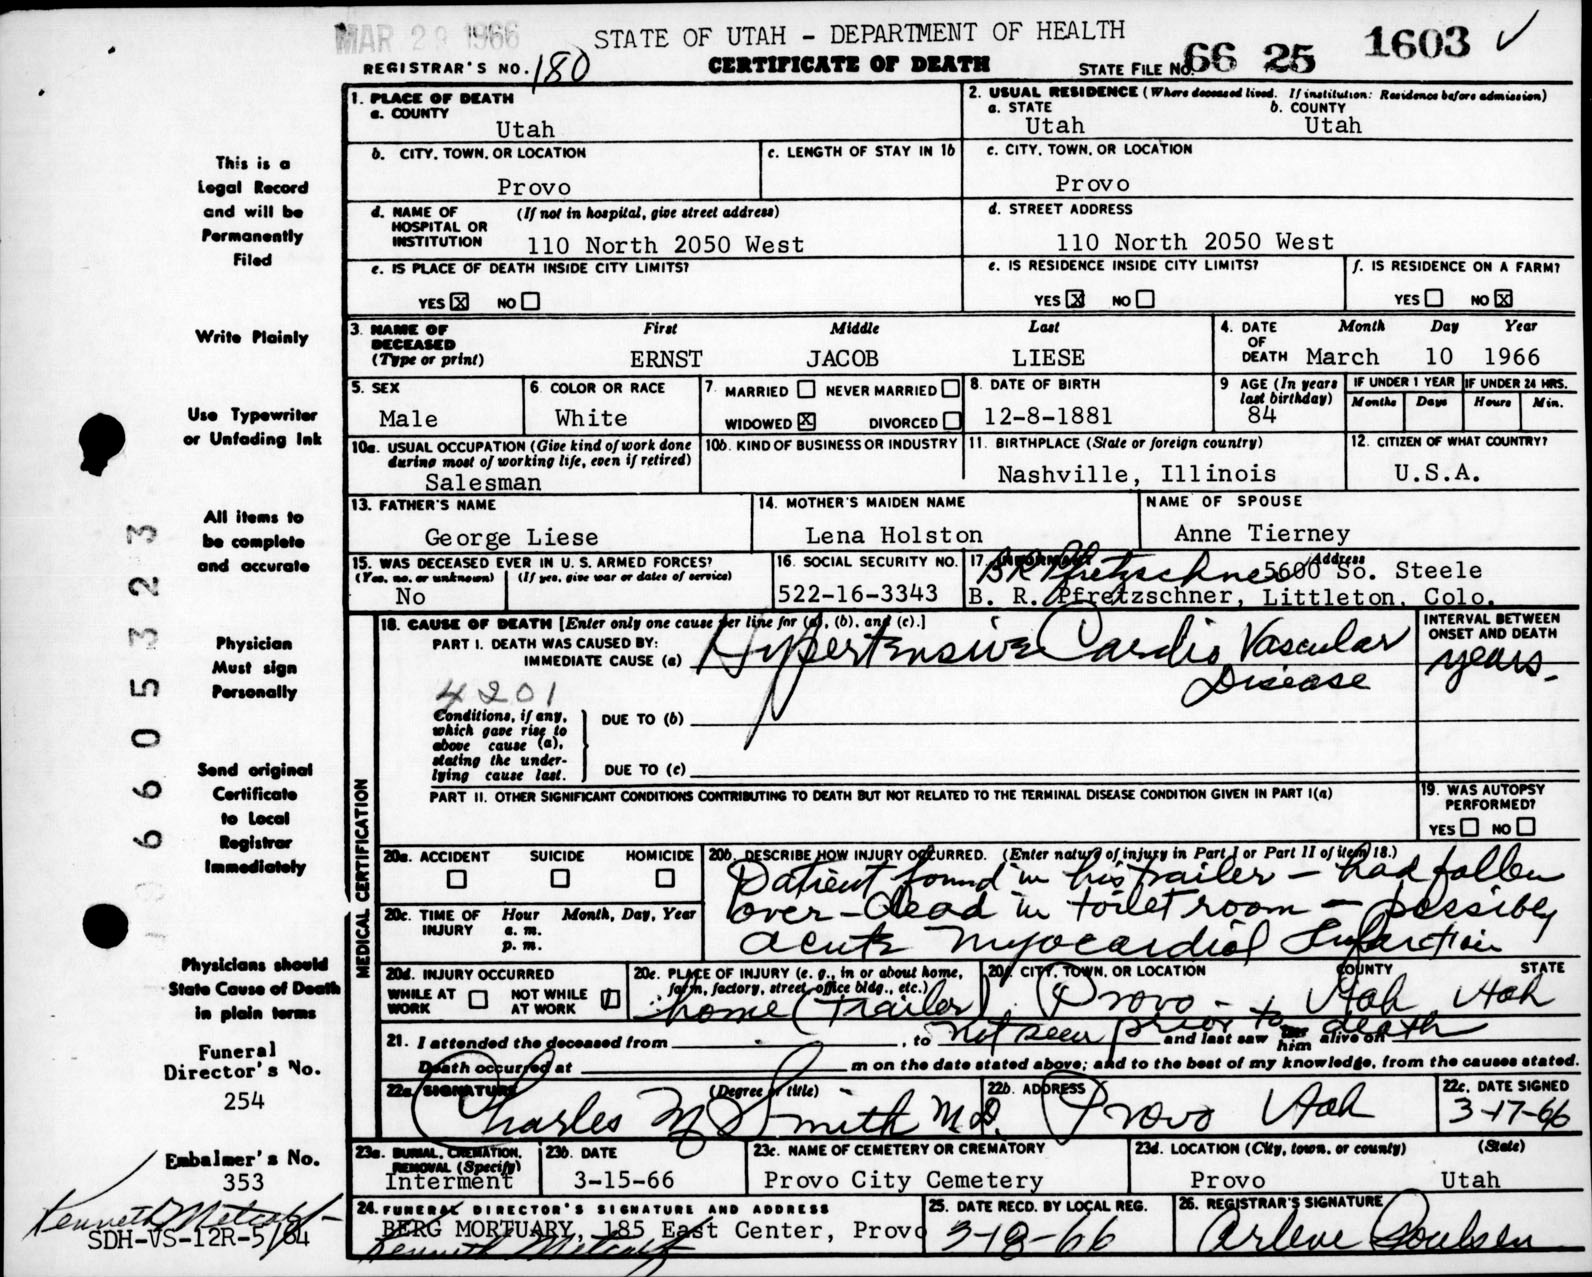 MAR 29 1966
STATE OF UTAH - DEPARTMENT OF HEALTH
REGISTRAR'S NO. 180
CERTIFICATE OF DEATH
STATE FILE NO. 66 25 1603 ✓
This is a
Legal Record
and will be
Permanently
Filed
Write Plainly
Use Typewriter
or Unfading Ink
All items to
be complete
and accurate
Physician
Must sign
Personally
Send original
Certificate
to Local
Registrar
Immediately
Physicians should
State Cause of Death
in plain terms
Funeral
Director's No.
254
Embalmer's No.
353
Kenneth Metcalf
SDH-VS-12R-5/64
6605323
1. PLACE OF DEATH
a. COUNTY
Utah
2. USUAL RESIDENCE (Where deceased lived. If institution: Residence before admission)
a. STATE b. COUNTY
Utah Utah
b. CITY, TOWN, OR LOCATION
Provo
c. LENGTH OF STAY IN 1b
c. CITY, TOWN, OR LOCATION
Provo
d. NAME OF (If not in hospital, give street address)
HOSPITAL OR
INSTITUTION 110 North 2050 West
d. STREET ADDRESS
110 North 2050 West
e. IS PLACE OF DEATH INSIDE CITY LIMITS?
YES X NO
e. IS RESIDENCE INSIDE CITY LIMITS?
YES X NO
f. IS RESIDENCE ON A FARM?
YES NO X
3. NAME OF First Middle Last
DECEASED
(Type or print) ERNST JACOB LIESE
4. DATE Month Day Year
OF
DEATH March 10 1966
5. SEX
Male
6. COLOR OR RACE
White
7. MARRIED NEVER MARRIED
WIDOWED X DIVORCED
8. DATE OF BIRTH
12-8-1881
9 AGE (In years
last birthday)
84
IF UNDER 1 YEAR
Months Days
IF UNDER 24 HRS.
Hours Min.
10a. USUAL OCCUPATION (Give kind of work done
during most of working life, even if retired)
Salesman
10b. KIND OF BUSINESS OR INDUSTRY
11. BIRTHPLACE (State or foreign country)
Nashville, Illinois
12. CITIZEN OF WHAT COUNTRY?
U.S.A.
13. FATHER'S NAME
George Liese
14. MOTHER'S MAIDEN NAME
Lena Holston
NAME OF SPOUSE
Anne Tierney
15. WAS DECEASED EVER IN U. S. ARMED FORCES?
(Yes, no, or unknown) (If yes, give war or dates of service)
No
16. SOCIAL SECURITY NO.
522-16-3343
17. INFORMANT Address
B R Pfretzschner 5600 So. Steele
B. R. Pfretzschner, Littleton, Colo.
18. CAUSE OF DEATH [Enter only one cause per line for (a), (b), and (c).]
PART I. DEATH WAS CAUSED BY:
IMMEDIATE CAUSE (a) Hypertensive Cardio Vascular
Disease
INTERVAL BETWEEN
ONSET AND DEATH
years.
4201
Conditions, if any,
which gave rise to
above cause (a),
stating the under-
lying cause last.
DUE TO (b)
DUE TO (c)
PART II. OTHER SIGNIFICANT CONDITIONS CONTRIBUTING TO DEATH BUT NOT RELATED TO THE TERMINAL DISEASE CONDITION GIVEN IN PART I(a)
19. WAS AUTOPSY
PERFORMED?
YES NO
MEDICAL CERTIFICATION
20a. ACCIDENT SUICIDE HOMICIDE
20b. DESCRIBE HOW INJURY OCCURRED. (Enter nature of injury in Part I or Part II of item 18.)
Patient found in his trailer - had fallen
over - dead in toilet room - possibly
acute myocardial infarction
20c. TIME OF Hour Month, Day, Year
INJURY a. m.
p. m.
20d. INJURY OCCURRED
WHILE AT NOT WHILE
WORK AT WORK
20e. PLACE OF INJURY (e. g., in or about home,
farm, factory, street, office bldg., etc.)
home (Trailer)
20f. CITY, TOWN, OR LOCATION COUNTY STATE
Provo - Utah Utah
21. I attended the deceased from , to not seen prior to death and last saw her him alive on
Death occurred at m on the date stated above; and to the best of my knowledge, from the causes stated.
22a. SIGNATURE (Degree or title)
Charles M Smith M.D.
22b. ADDRESS
Provo Utah
22c. DATE SIGNED
3-17-66
23a. BURIAL, CREMATION,
REMOVAL (Specify)
Interment
23b. DATE
3-15-66
23c. NAME OF CEMETERY OR CREMATORY
Provo City Cemetery
23d. LOCATION (City, town, or county) (State)
Provo Utah
24. FUNERAL DIRECTOR'S SIGNATURE AND ADDRESS
BERG MORTUARY, 185 East Center, Provo
Kenneth Metcalf
25. DATE RECD. BY LOCAL REG.
3-18-66
26. REGISTRAR'S SIGNATURE
Arlene Poulsen